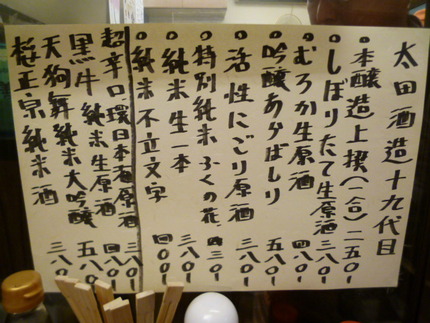 太田酒造十九代目
本醸造上撰(一合)二五〇一
しぼりたて生原酒 三八〇一
むろか生原酒 四八〇一
吟醸あらばしり 五八〇一
活性にごり原酒 三八〇一
特別純米ふくの花 四三〇一
純米生一本 三八〇一
純米不立文字 四〇〇一
超辛口環日本海原酒 四三〇一
黒牛純米生原酒 四八〇一
天狗舞純米大吟醸 五八〇一
桜正宗純米酒 三八〇一